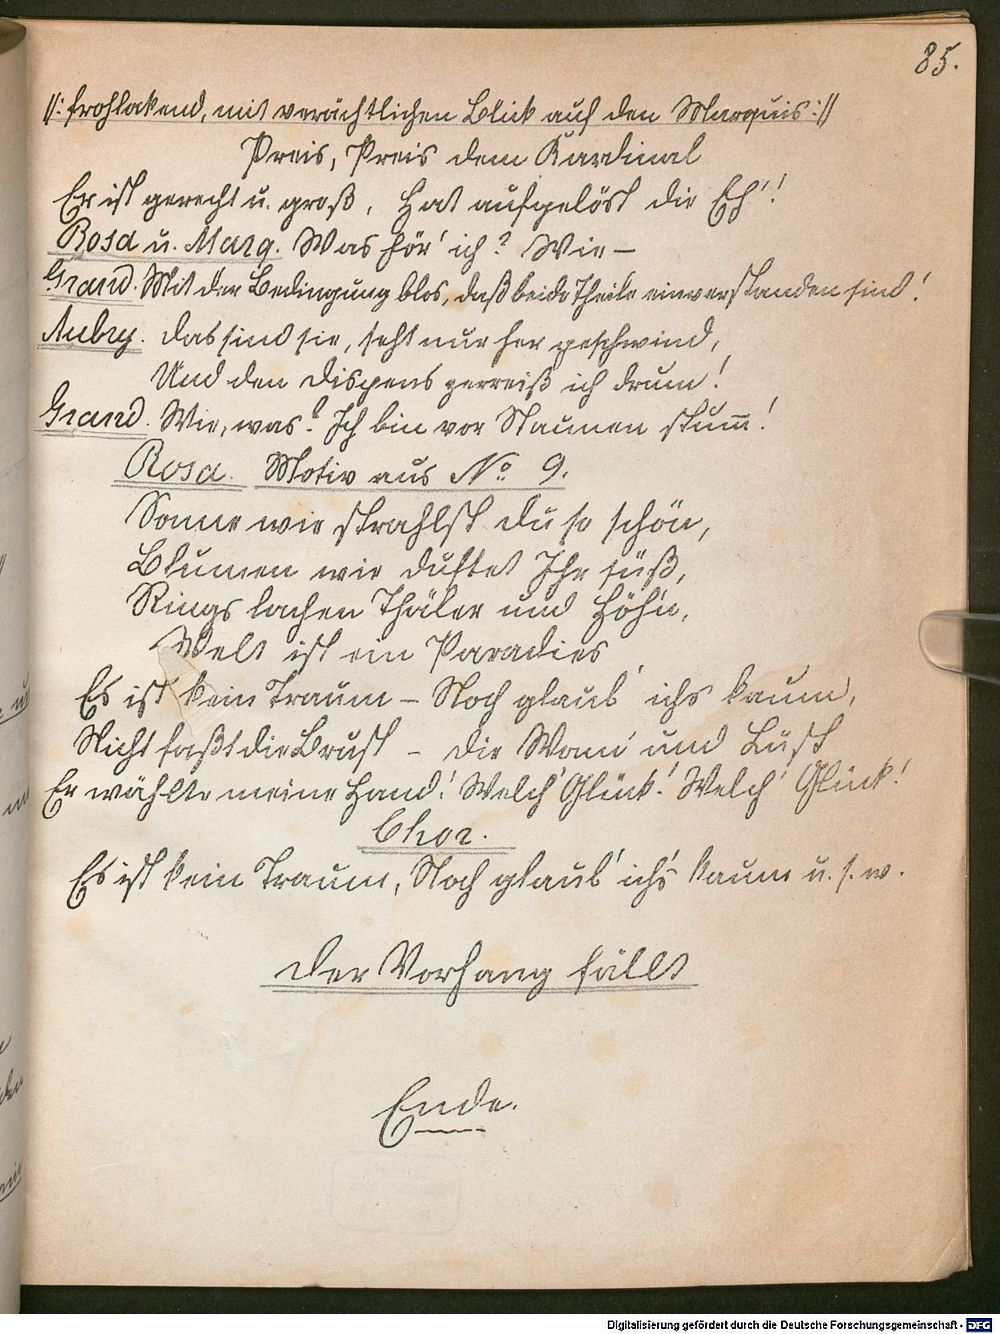 85.
//: frohlokend, mit verächtlichen Blick auf den Marquis ://
Preis, Preis dem Kardinal
Er ist gerecht u. groß, Hat aufgelöst die Eh'!
Rosa u. Marq. Was hör' ich? Wie –
Grand. Mit der Bedingung blos, daß beide Theile einverstanden sind!
Aubry. Das sind sie, seht nur her geschwind,
Und den Dispens zerreiß ich drum!
Grand. Wie, was? Ich bin vor Staunen stum̅!
Rosa. Motiv aus No 9.
Sonne wie strahlst du so schön,
Blumen wie duftet Ihr süß,
Rings lachen Thäler und Höh'n,
Welt ist ein Paradies
Es ist kein Traum – Noch glaub' ichs kaum,
Nicht faßt die Brust – die Wonn' und Lust
Er wählte meine Hand! Welch' Glück! Welch' Glück!
Chor.
Es ist kein Traum, Noch glaub' ich's kaum u. s. w.
Der Vorhang fällt
Ende.
Digitalisierung gefördert durch die Deutsche Forschungsgemeinschaft - DFG